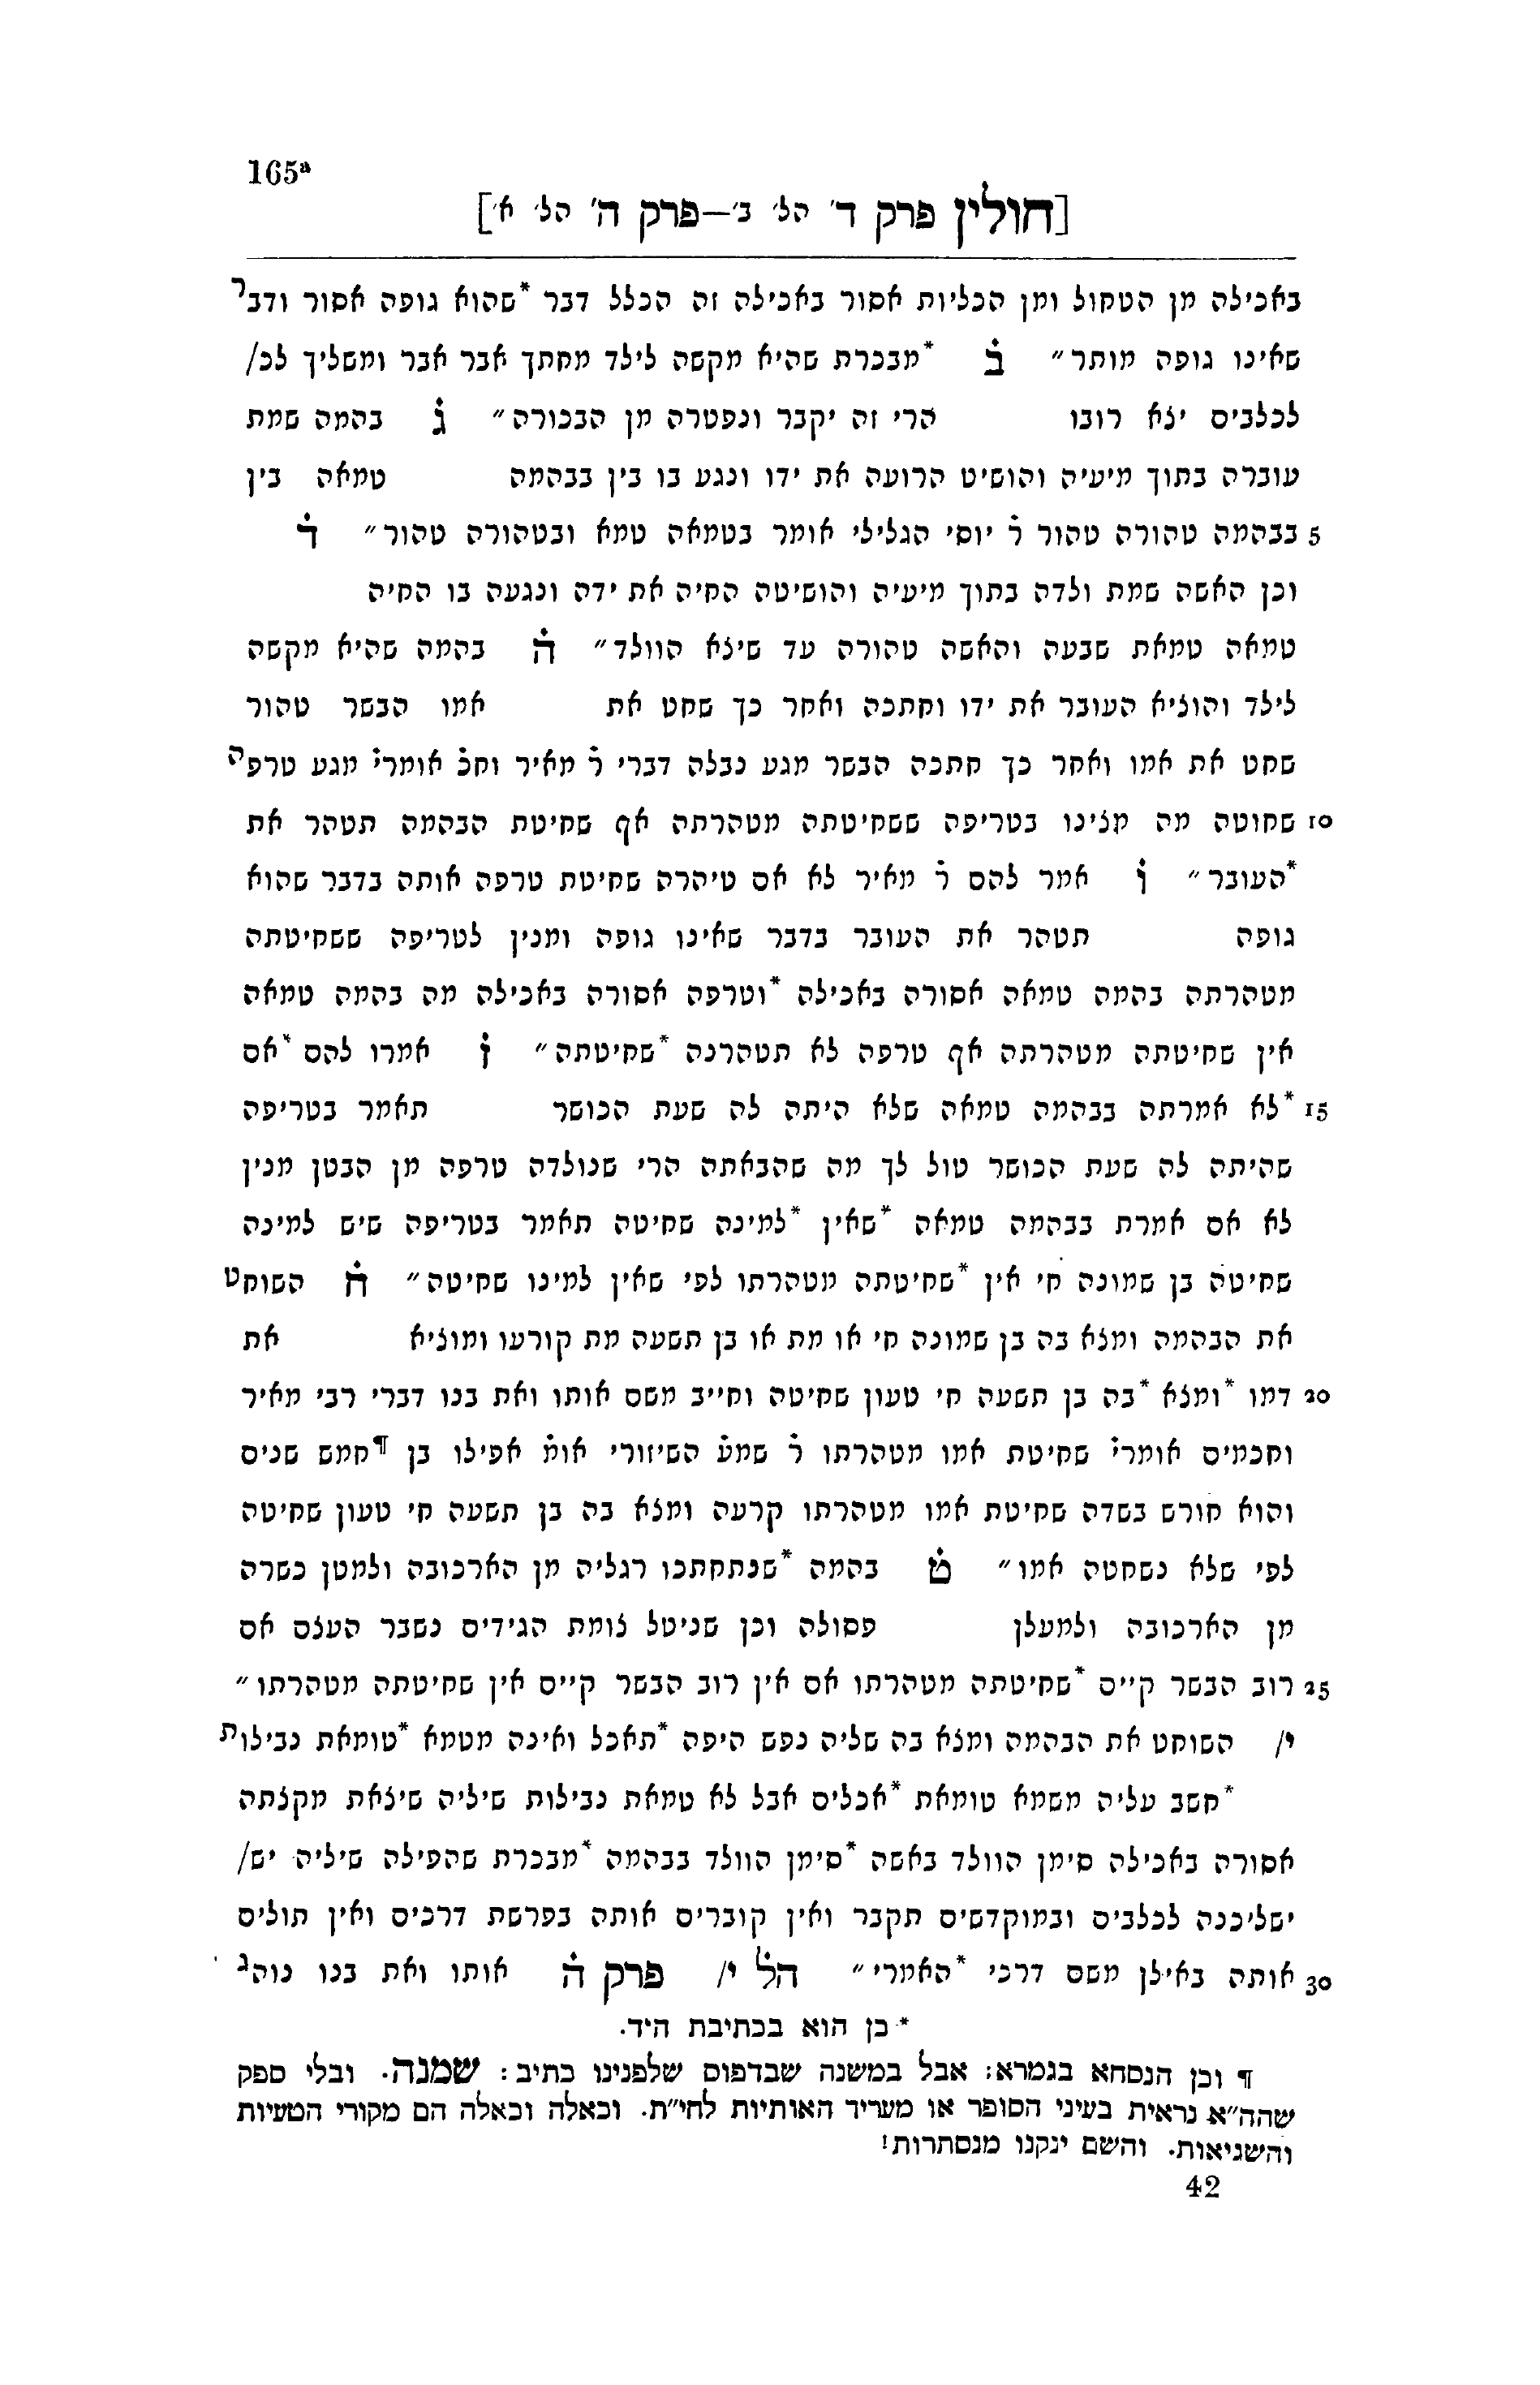 165ª
[חולין פרק ד' הל' ב'—פרק ה' הל' א']
באכילה מן הטחול ומן הכליות אסור באכילה זה הכלל דבר *שהוא גופה אסור ודבר
שאינו גופה מותר״ ב֗ *מבכרת שהיא מקשה לילד מחתך אבר אבר ומשליך לכ/
לכלבים יצא רובו הרי זה יקבר ונפטרה מן הבכורה״ ג֗ בהמה שמת
עוברה בתוך מיעיה והושיט הרועה את ידו ונגע בו בין בבהמה טמאה בין
5 בבהמה טהורה טהור ר֗ יוסי הגלילי אומר בטמאה טמא ובטהורה טהור״ ד֗
וכן האשה שמת ולדה בתוך מיעיה והושיטה החיה את ידה ונגעה בו החיה
טמאה טמאת שבעה והאשה טהורה עד שיצא הוולד״ ה֗ בהמה שהיא מקשה
לילד והוציא העובר את ידו וחתכה ואחר כך שחט את אמו הבשר טהור
שחט את אמו ואחר כך חתכה הבשר מגע נבלה דברי ר֗ מאיר וחכ֗ אומרי֗ מגע טרפה
10 שחוטה מה מצינו בטריפה ששחיטתה מטהרתה אף שחיטת הבהמה תטהר את
*העובר״ ו֗ אמר להם ר֗ מאיר לא אם טיהרה שחיטת טרפה אותה בדבר שהוא
גופה תטהר את העובר בדבר שאינו גופה ומנין לטריפה ששחיטתה
מטהרתה בהמה טמאה אסורה באכילה *וטרפה אסורה באכילה מה בהמה טמאה
אין שחיטתה מטהרתה אף טרפה לא תטהרנה *שחיטתה״ ז֗ אמרו להם *אם
15 *לא אמרתה בבהמה טמאה שלא היתה לה שעת הכושר תאמר בטריפה
שהיתה לה שעת הכושר טול לך מה שהבאתה הרי שנולדה טרפה מן הבטן מנין
לא אם אמרת בבהמה טמאה *שאין *למינה שחיטה תאמר בטריפה שיש למינה
שחיטה בן שמונה חי אין *שחיטתה מטהרתו לפי שאין למינו שחיטה״ ח֗ השוחט
את הבהמה ומצא בה בן שמונה חי או מת או בן תשעה מת קורעו ומוציא את
20 דמו *ומצא *בה בן תשעה חי טעון שחיטה וחייב משם אותו ואת בנו דברי רבי מאיר
וחכמים אומרי֗ שחיטת אמו מטהרתו ר֗ שמע֗ השיזורי אומ֗ אפילו בן ¶חמש שנים
והוא חורש בשדה שחיטת אמו מטהרתו קרעה ומצא בה בן תשעה חי טעון שחיטה
לפי שלא נשחטה אמו״ ט֗ בהמה *שנתחתכו רגליה מן הארכובה ולמטן כשרה
מן הארכובה ולמעלן פסולה וכן שניטל צומת הגידים נשבר העצם אם
25 רוב הבשר קיים *שחיטתה מטהרתו אם אין רוב הבשר קיים אין שחיטתה מטהרתו״
י/ השוחט את הבהמה ומצא בה שליה נפש היפה *תאכל ואינה מטמא *טומאת נבילות
*חשב עליה משמא טומאת *אכלים אבל לא טמאת נבילות שיליה שיצאת מקצתה
אסורה באכילה סימן הוולד באשה *סימן הוולד בבהמה *מבכרת שהפילה שיליה יש/
ישליכנה לכלבים ובמוקדשים תקבר ואין קוברים אותה בפרשת דרכים ואין תולים
30 אותה באילן משם דרכי *האמרי״ הל֗ י/ פרק ה֗ אותו ואת בנו נוהג
* כן הוא בכתיבת היד.
¶ וכן הנסחא בגמרא: אבל במשנה שבדפוס שלפנינו כתיב: שמנה. ובלי ספק
שהה״א נראית בעיני הסופר או מעריד האותיות לחי״ת. וכאלה וכאלה הם מקורי הטעיות
והשגיאות. והשם ינקנו מנסתרות!
42